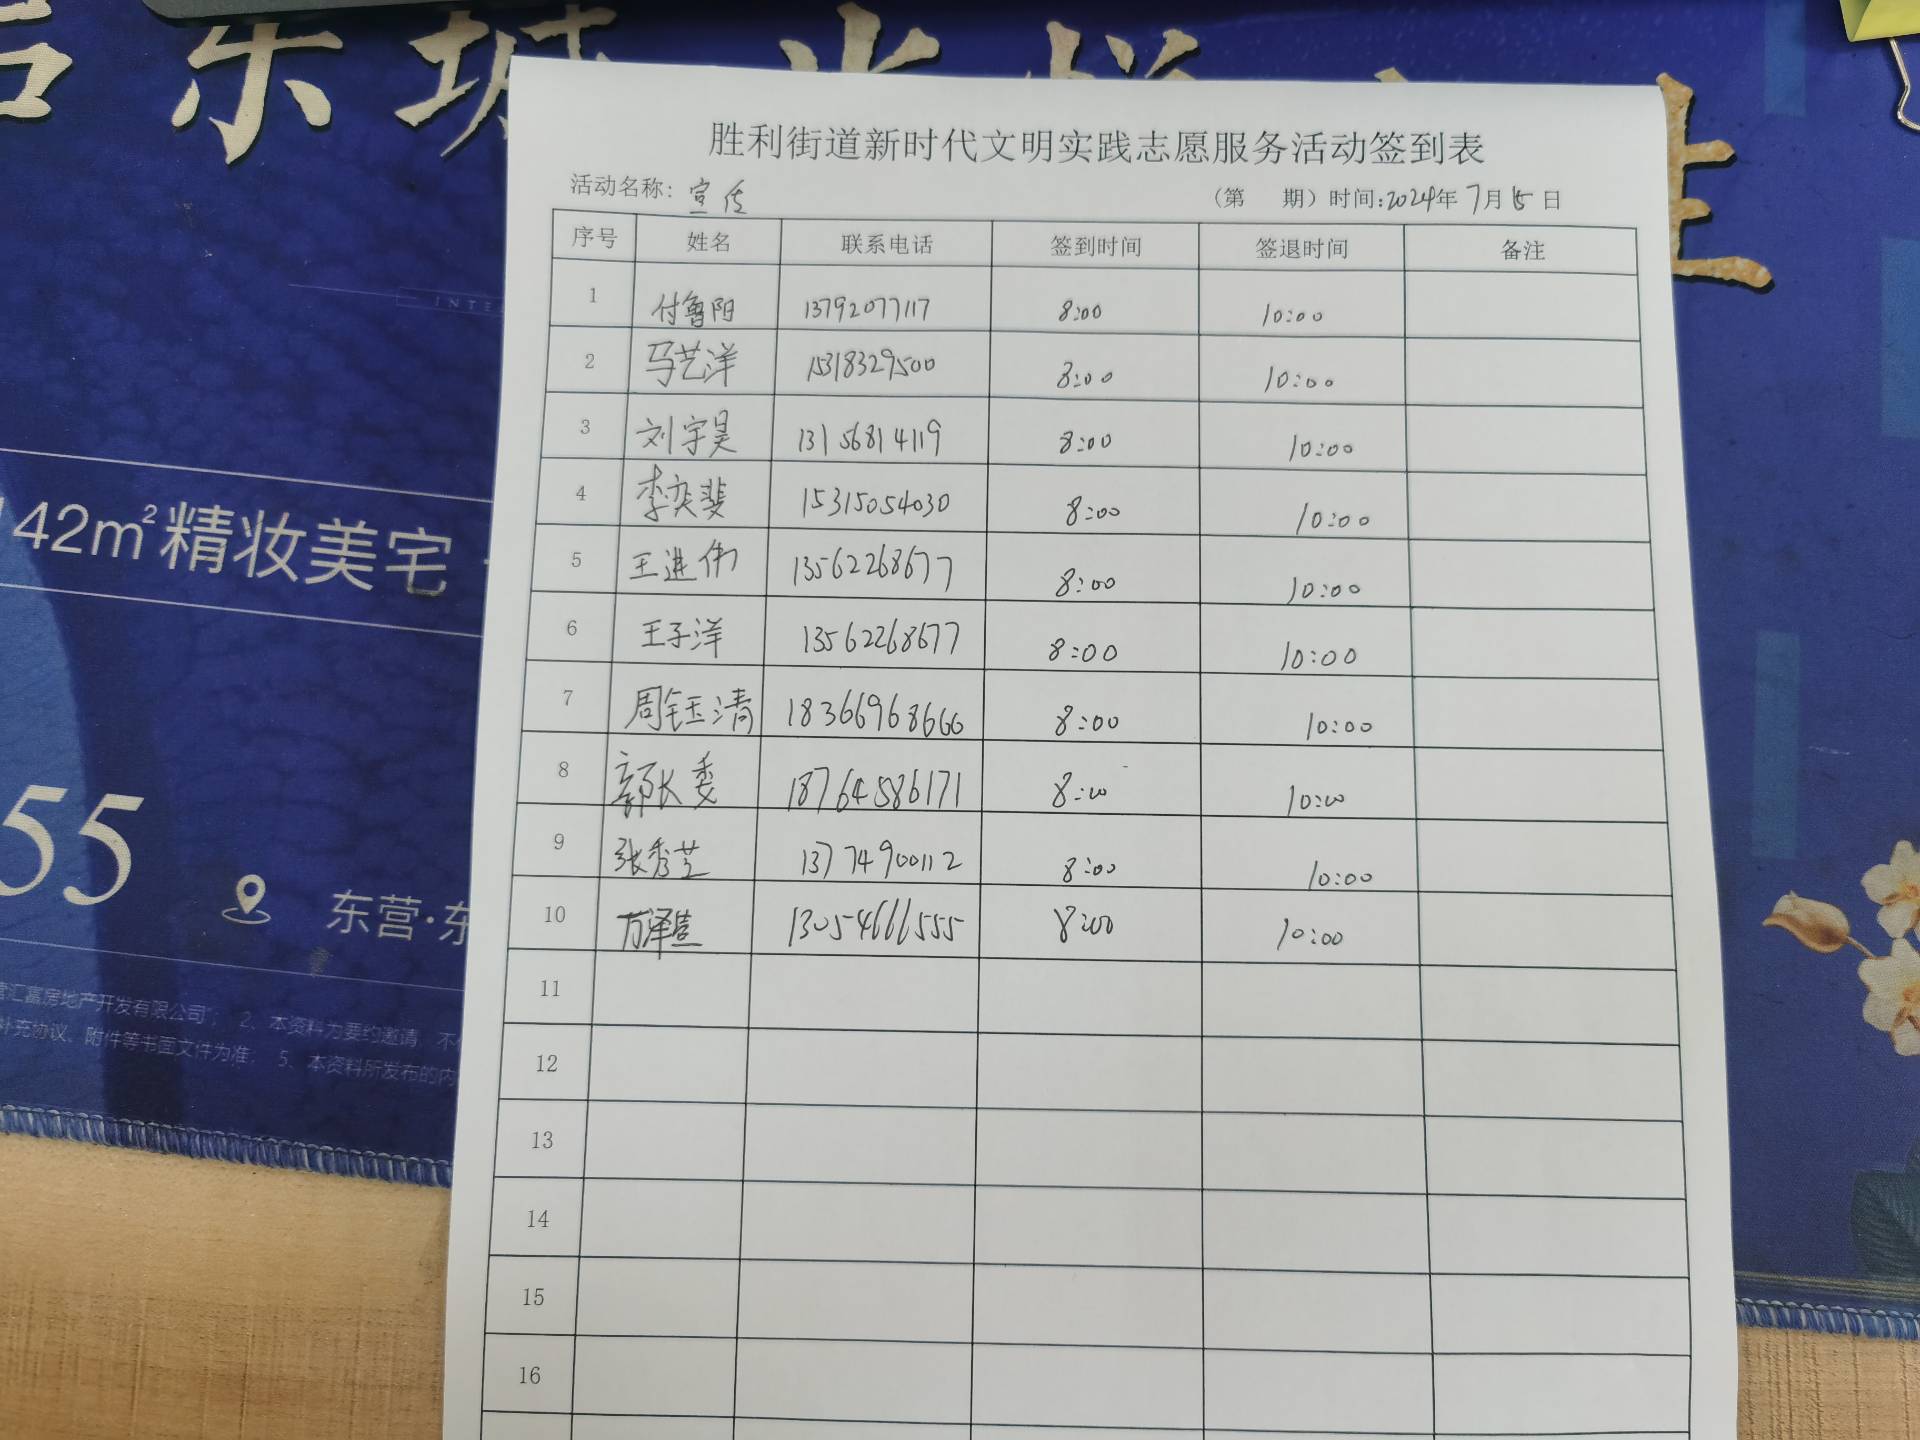 东城
142m²精妆美宅
55
东营·东
营汇富房地产开发有限公司"; 2、本资料为要约邀请,不
补充协议、附件等书面文件为准; 5、本资料所发布的内
胜利街道新时代文明实践志愿服务活动签到表
活动名称: 宣传 (第 期) 时间:2024年 7月 15 日
序号 姓名 联系电话 签到时间 签退时间 备注
1 付鲁阳 13792077117 8:00 10:00
2 马艺洋 15318329500 8:00 10:00
3 刘宇昊 13156814119 8:00 10:00
4 李奕斐 15315054030 8:00 10:00
5 王进伟 13562268677 8:00 10:00
6 王子洋 13562268677 8:00 10:00
7 周钰清 18366968666 8:00 10:00
8 郭长委 18764586171 8:00 10:00
9 张秀芝 13774900112 8:00 10:00
10 万泽萱 13054666555 8:00 10:00
11
12
13
14
15
16